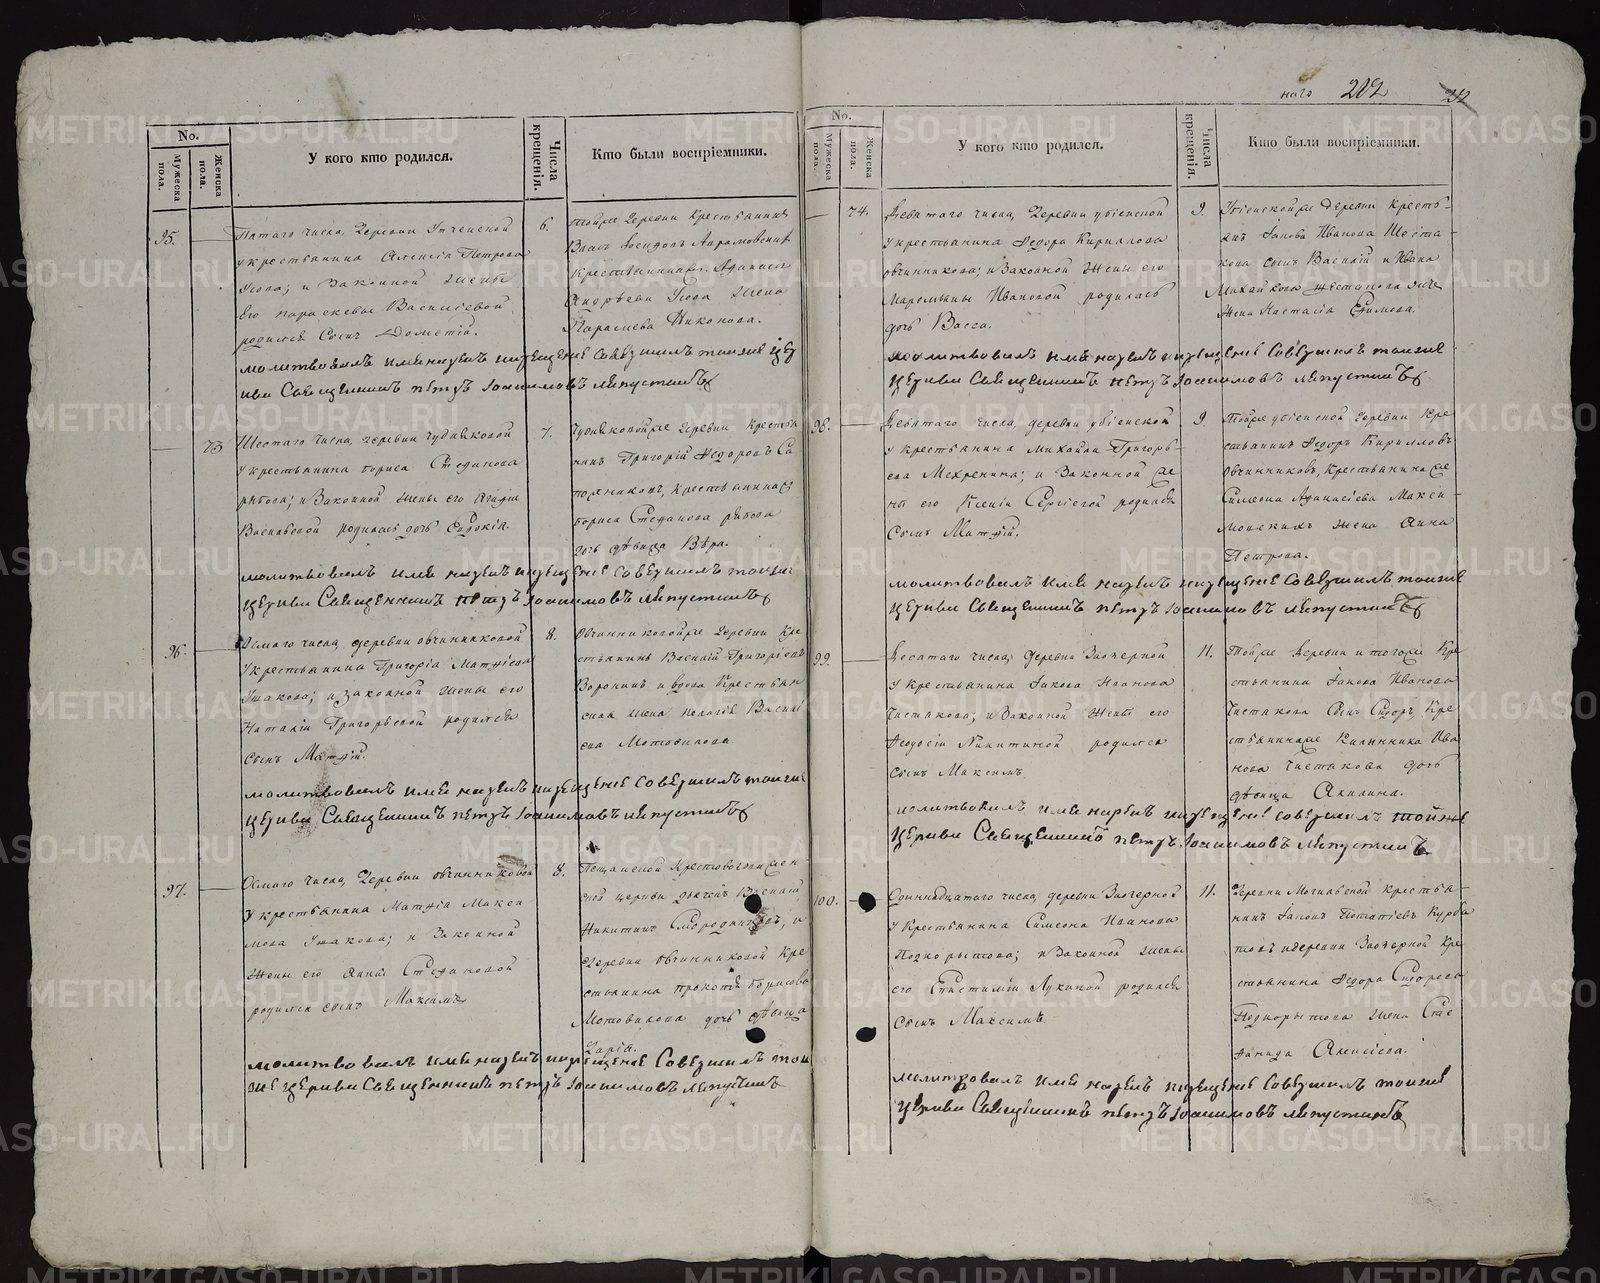 наго 202
No.
Мужеска пола.
Женска пола.
У кого кто родился.
Числа крещенія.
Кто были воспріемники.
95.
Пятаго числа, Деревни
у крестьянина Алексія Петрова
Усова; и законной жены
Его Параскевы Василіевой
родился Сынъ Дометій.
6.
тойже Деревни Крестьянинъ
Крестьянина Афанасія
Андрѣева Усова жена
Параскева Никонова.
молитвовалъ имя нарекъ и крещеніе совершилъ тоя же цер
кви Священникъ Петръ Іоакимовъ Ляпустинъ
73
Шестаго числа, деревни Чудняковой
у крестьянина Бориса Стефанова
Рябова; и законной жены его Агафіи
Васильевой родилась дочь Евдокія.
7.
Чудняковойже Деревни Крестья
нинъ Григорій Федоровъ Са
пожниковъ, крестьянина
Бориса Стефанова Рябова
дочь дѣвица Вѣра.
молитвовалъ имя нарекъ и крещеніе совершилъ тоя же
церкви Священникъ Петръ Іоакимовъ Ляпустинъ
96.
Осмаго числа, деревни Овчинниковой
у крестьянина Григорія Матфіева
Ушакова; и законной жены его
Наталіи Григорьевой родился
сынъ Матфій.
8.
Овчинниковойже Деревни Кре
стьянинъ Василій Григоріевъ
Воронинъ и вдова Крестьян
ская жена Пелагія Василі
ева Мотовилова.
молитвовалъ имя нарекъ и крещеніе совершилъ тоя же
церкви Священникъ Петръ Іоакимовъ Ляпустинъ
97.
Осмаго числа, Деревни Овчинниковой
у крестьянина Матфія Макси
мова Ушакова; и законной
жены его Анны Стефановой
родился сынъ Максимъ
8.
Пещанской Крестовоздвижен
ской церкви дьячекъ Василій
Никитинъ Смородинцовъ, и
Деревни Овчинниковой Кре
стьянина Прокопія Борисова
Мотовилова дочь дѣвица
Дарія.
молитвовалъ имя нарекъ и крещеніе совершилъ тоя
же церкви Священникъ Петръ Іоакимовъ Ляпустинъ
No.
Мужеска пола.
Женска пола.
У кого кто родился.
Числа крещенія.
Кто были воспріемники.
74.
Девятаго числа, Деревни Убіенской
у крестьянина Федора Кириллова
Овчинникова; и законной жены его
Маремьяны Ивановой родилась
дочь Васса.
9.
Убіенскойже Деревни Кресть-
янъ Іакова Иванова Шеста-
кова сынъ Василій и Ивана
Михайлова Шестакова же
жена Настасія Ефимова.
молитвовалъ имя нарекъ и крещеніе совершилъ тоя же
церкви Священникъ Петръ Іоакимовъ Ляпустинъ
98.
Девятаго числа, деревни Убіенской
у крестьянина Михайла Григорь-
ева Мехренина; и законной же
ны его Ксеніи Сергіевой родился
Сынъ Матфій.
9.
Тойже Убіенской Деревни Кре
стьянинъ Федоръ Кирилловъ
Овчинниковъ, Крестьянина же
Симеона Афанасіева Макси-
монскихъ жена Анна
Петрова.
молитвовалъ имя нарекъ и крещеніе совершилъ тоя же
церкви Священникъ Петръ Іоакимовъ Ляпустинъ
99.
Десятаго числа, Деревни Заозерной
у крестьянина Іакова Иванова
Чистякова; и законной жены его
Феодосіи Никитиной родился
сынъ Максимъ
11.
Тойже Деревни и тогоже Кре
стьянина Іакова Иванова
Чистякова Сынъ Сидоръ, Кре
стьянинаже Калинника Ива
нова Чистякова дочь
дѣвица Акилина.
молитвовалъ имя нарекъ и крещеніе совершилъ тойже
церкви Священникъ Петръ Іоакимовъ Ляпустинъ
100.
Одиннадцатаго числа, деревни Заозерной
у крестьянина Симеона Иванова
Подкорытова; и законной жены
его Епистиміи Лукиной родился
Сынъ Максимъ
11.
Деревни Могильской крестья-
нинъ Іаковъ Потапіевъ Курба
товъ и деревни Заозерной Кре
стьянина Федора Сидорова
Подкорытова жена Сте
фанида Алексіева.
молитвовалъ имя нарекъ и крещеніе совершилъ тоя же
церкви Священникъ Петръ Іоакимовъ Ляпустинъ
METRIKI.GASO-URAL.RU